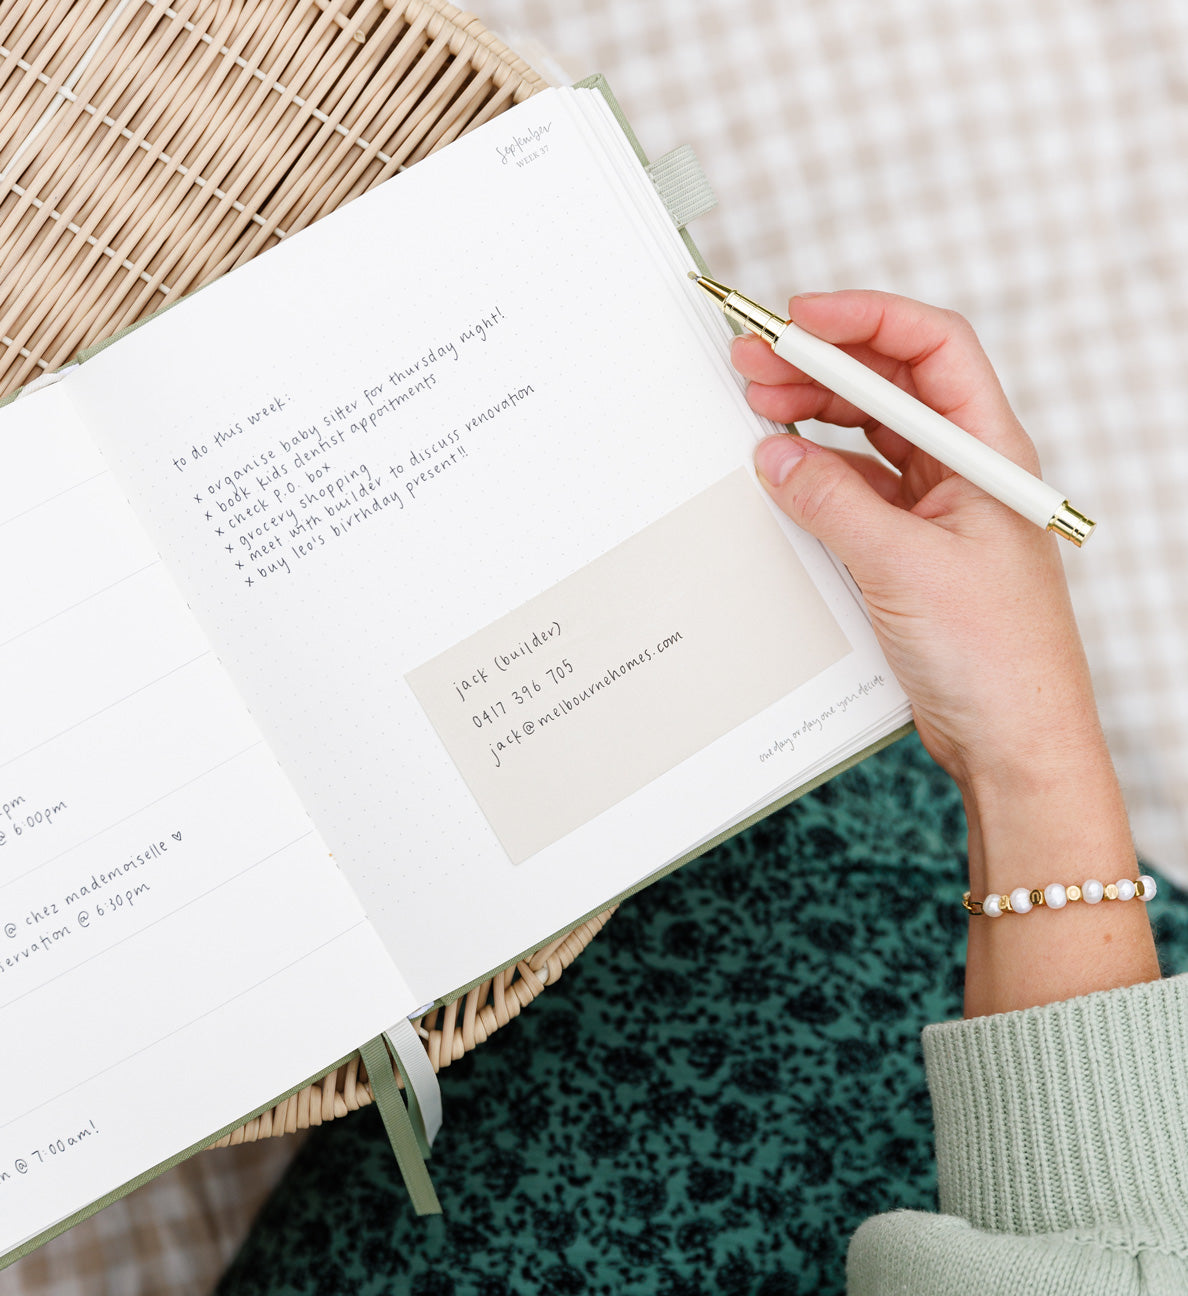 pm
@ 6:00pm
@ chez mademoiselle ♡
servation @ 6:30pm
n @ 7:00am!
September
WEEK 37
to do this week:
x organise baby sitter for thursday night!
x book kids dentist appoitments
x check P.O. box
x grocery shopping
x meet with builder to discuss renovation
x buy leo's birthday present!!
jack (builder)
0417 396 705
jack@melbournehomes.com
one day or day one you decide